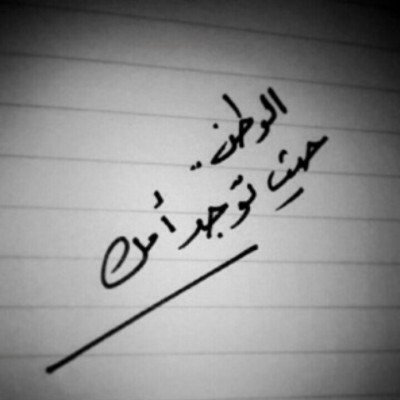 الوطن ..
حيث توجد أمك